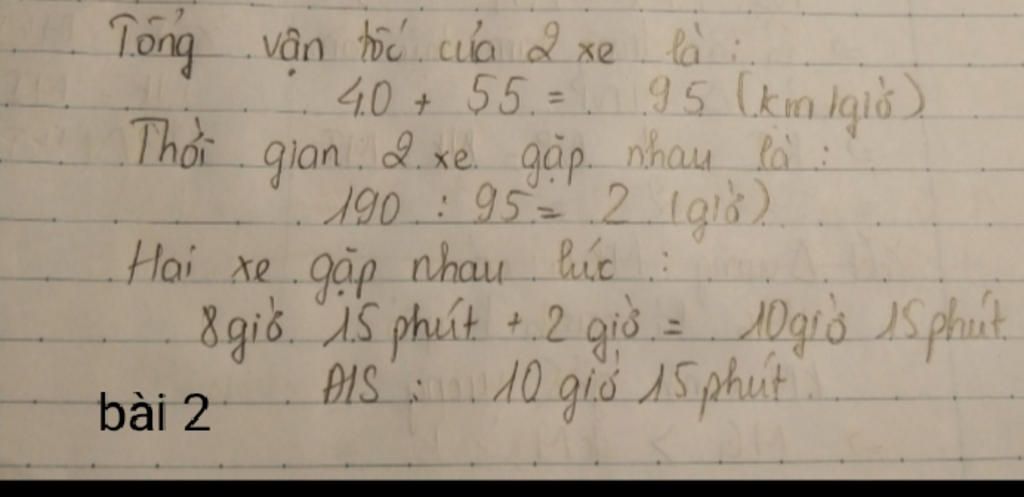 Tổng vận tốc của 2 xe là :
40 + 55 = 95 (km/giờ)
Thời gian 2 xe gặp nhau là :
190 : 95 = 2 (giờ)
Hai xe gặp nhau lúc :
8 giờ 15 phút + 2 giờ = 10 giờ 15 phút
Đ/S : 10 giờ 15 phút
bài 2